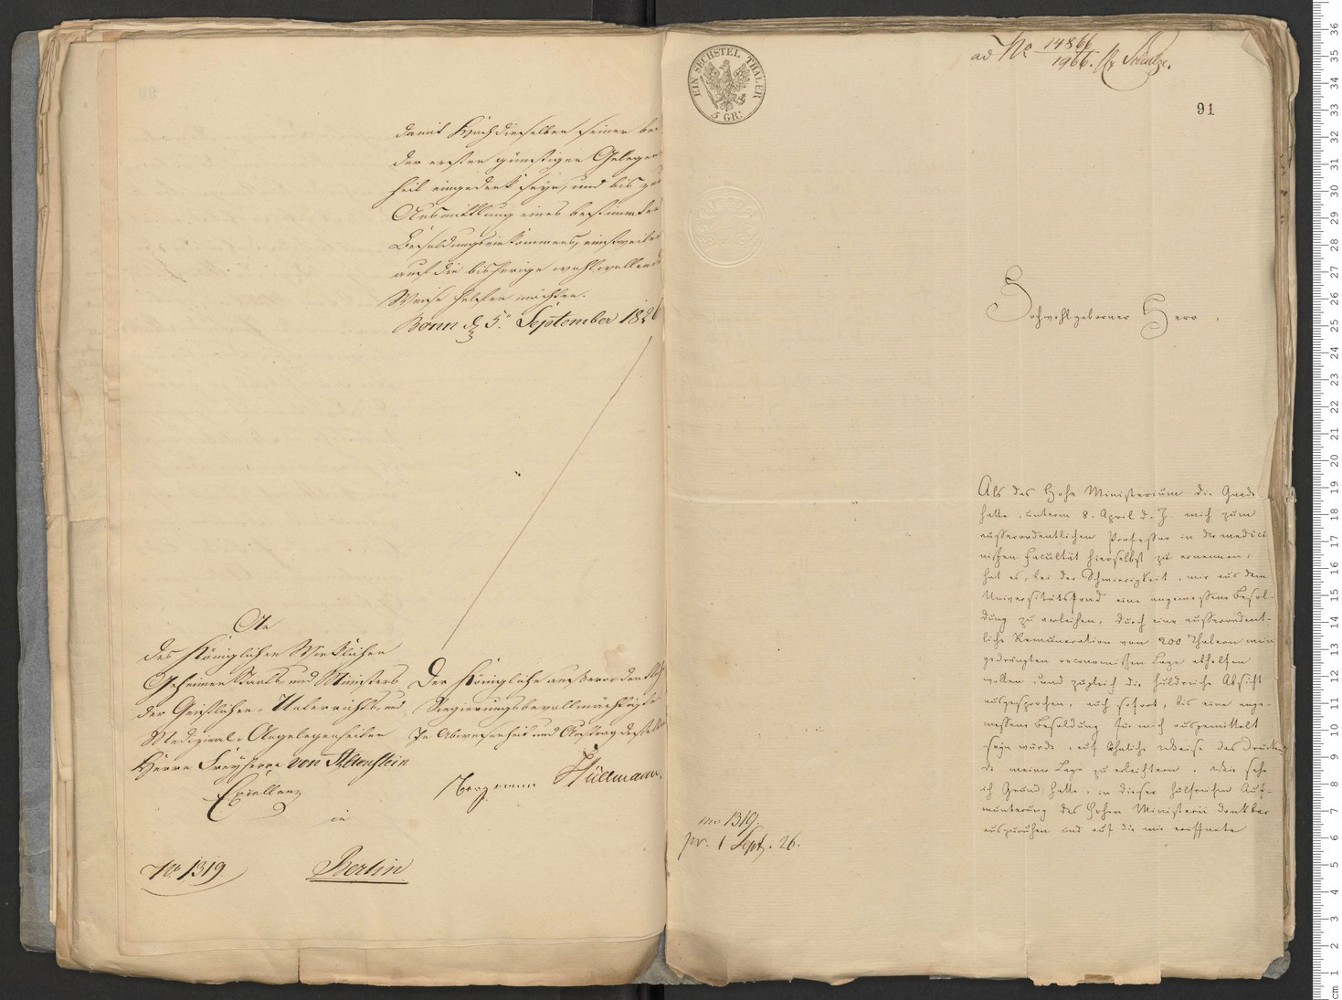 damit Hochdieselben seiner bei
der ersten günstigen Gelegen
heit eingedenk seyn, und bis zur
Ausmittlung eines bestimmten
Besoldungseinkommens, einstweilen
auf die bisherige wohlwollende
Weise helfen möchten.
Bonn d. 5n September 1826
An
des Königlichen Wirklichen
Geheimen Staats und Ministers
der Geistlichen, Unterrichts, und
Medizinal-Angelegenheiten
Herrn Freyherrn von Altenstein
Excellenz
in
Berlin
No 1319
Der Königliche außerordentliche
Regierungsbevollmächtigte
In Abwesenheit und Auftrag desselben
Bergmann Hüllmann
EIN SECHSTEL THALER
5 GR:
ad No 14866
1966. Schulze.
91
Hochwohlgeborner Herr,
Als das Hohe Ministerium die Gnade
hatte, unterm 8. April d. J. mich zum
ausserordentlichen Professor in der medici-
nischen Facultät hierselbst zu ernennen,
hat es, bei der Schwierigkeit, mir aus dem
Universitätsfond eine angemessene Besol-
dung zu verleihen, durch eine ausserordent-
liche Remuneration von 200 Thalern mein
gedrängten oeconomischen Lage abhelfen
wollen, und zugleich die huldreiche Absicht
ausgesprochen, auch sofort, bis eine ange-
messene Besoldung für mich ausgemittelt
sein würde, auf ähnliche Weise das Drückende
meiner Lage zu erleichtern. Wie sehr
ich Grund hatte, in dieser hülfreichen Auf-
munterung des Hohen Ministerii dankbar
auszuruhen und auf die mir eröffnete
no 1319.
pr. 1 Sept. 26.